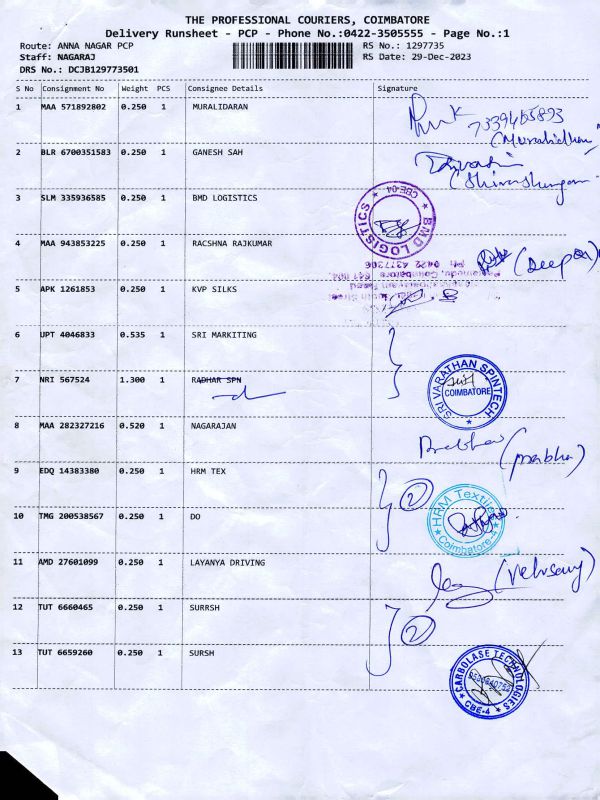 THE PROFESSIONAL COURIERS, COIMBATORE
Delivery Runsheet - PCP - Phone No.:0422-3505555 - Page No.:1
Route: ANNA NAGAR PCP
RS No.: 1297735
Staff: NAGARAJ
RS Date: 29-Dec-2023
DRS No.: DCJB129773501
S No Consignment No Weight PCS Consignee Details Signature
1 MAA 571892802 0.250 1 MURALIDARAN
7339465893
(Muralidharan)
2 BLR 6700351583 0.250 1 GANESH SAH
(Shivashangar
3 SLM 335936585 0.250 1 BMD LOGISTICS
BMD LOGISTICS
CBE-04
4 MAA 943853225 0.250 1 RACSHNA RAJKUMAR
Coimbatore 641 004.
Ph: 0422 4377306
5 APK 1261853 0.250 1 KVP SILKS
6 UPT 4046833 0.535 1 SRI MARKITING
7 NRI 567524 1.300 1 RADHAR SPN
SRI VARATHAN SPINTECH
COIMBATORE
8 MAA 282327216 0.520 1 NAGARAJAN
Prabha (prabha)
9 EDQ 14383380 0.250 1 HRM TEX
2
HRM Textile
Coimbatore-4
10 TMG 200538567 0.250 1 DO
11 AMD 27601099 0.250 1 LAYANYA DRIVING
12 TUT 6660465 0.250 1 SURRSH
2
13 TUT 6659260 0.250 1 SURSH
CARBOLASE TECHNOLOGIES
CBE-4